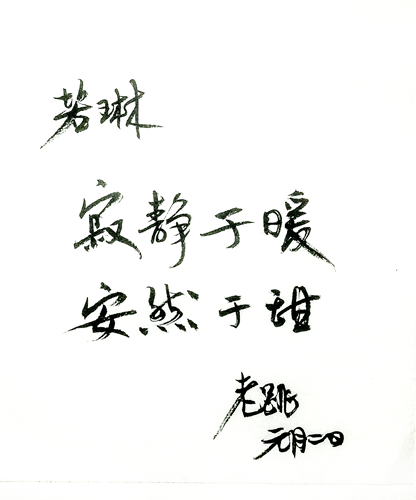 若琳
寂静于暖
安然于甜
老跳
元月二日